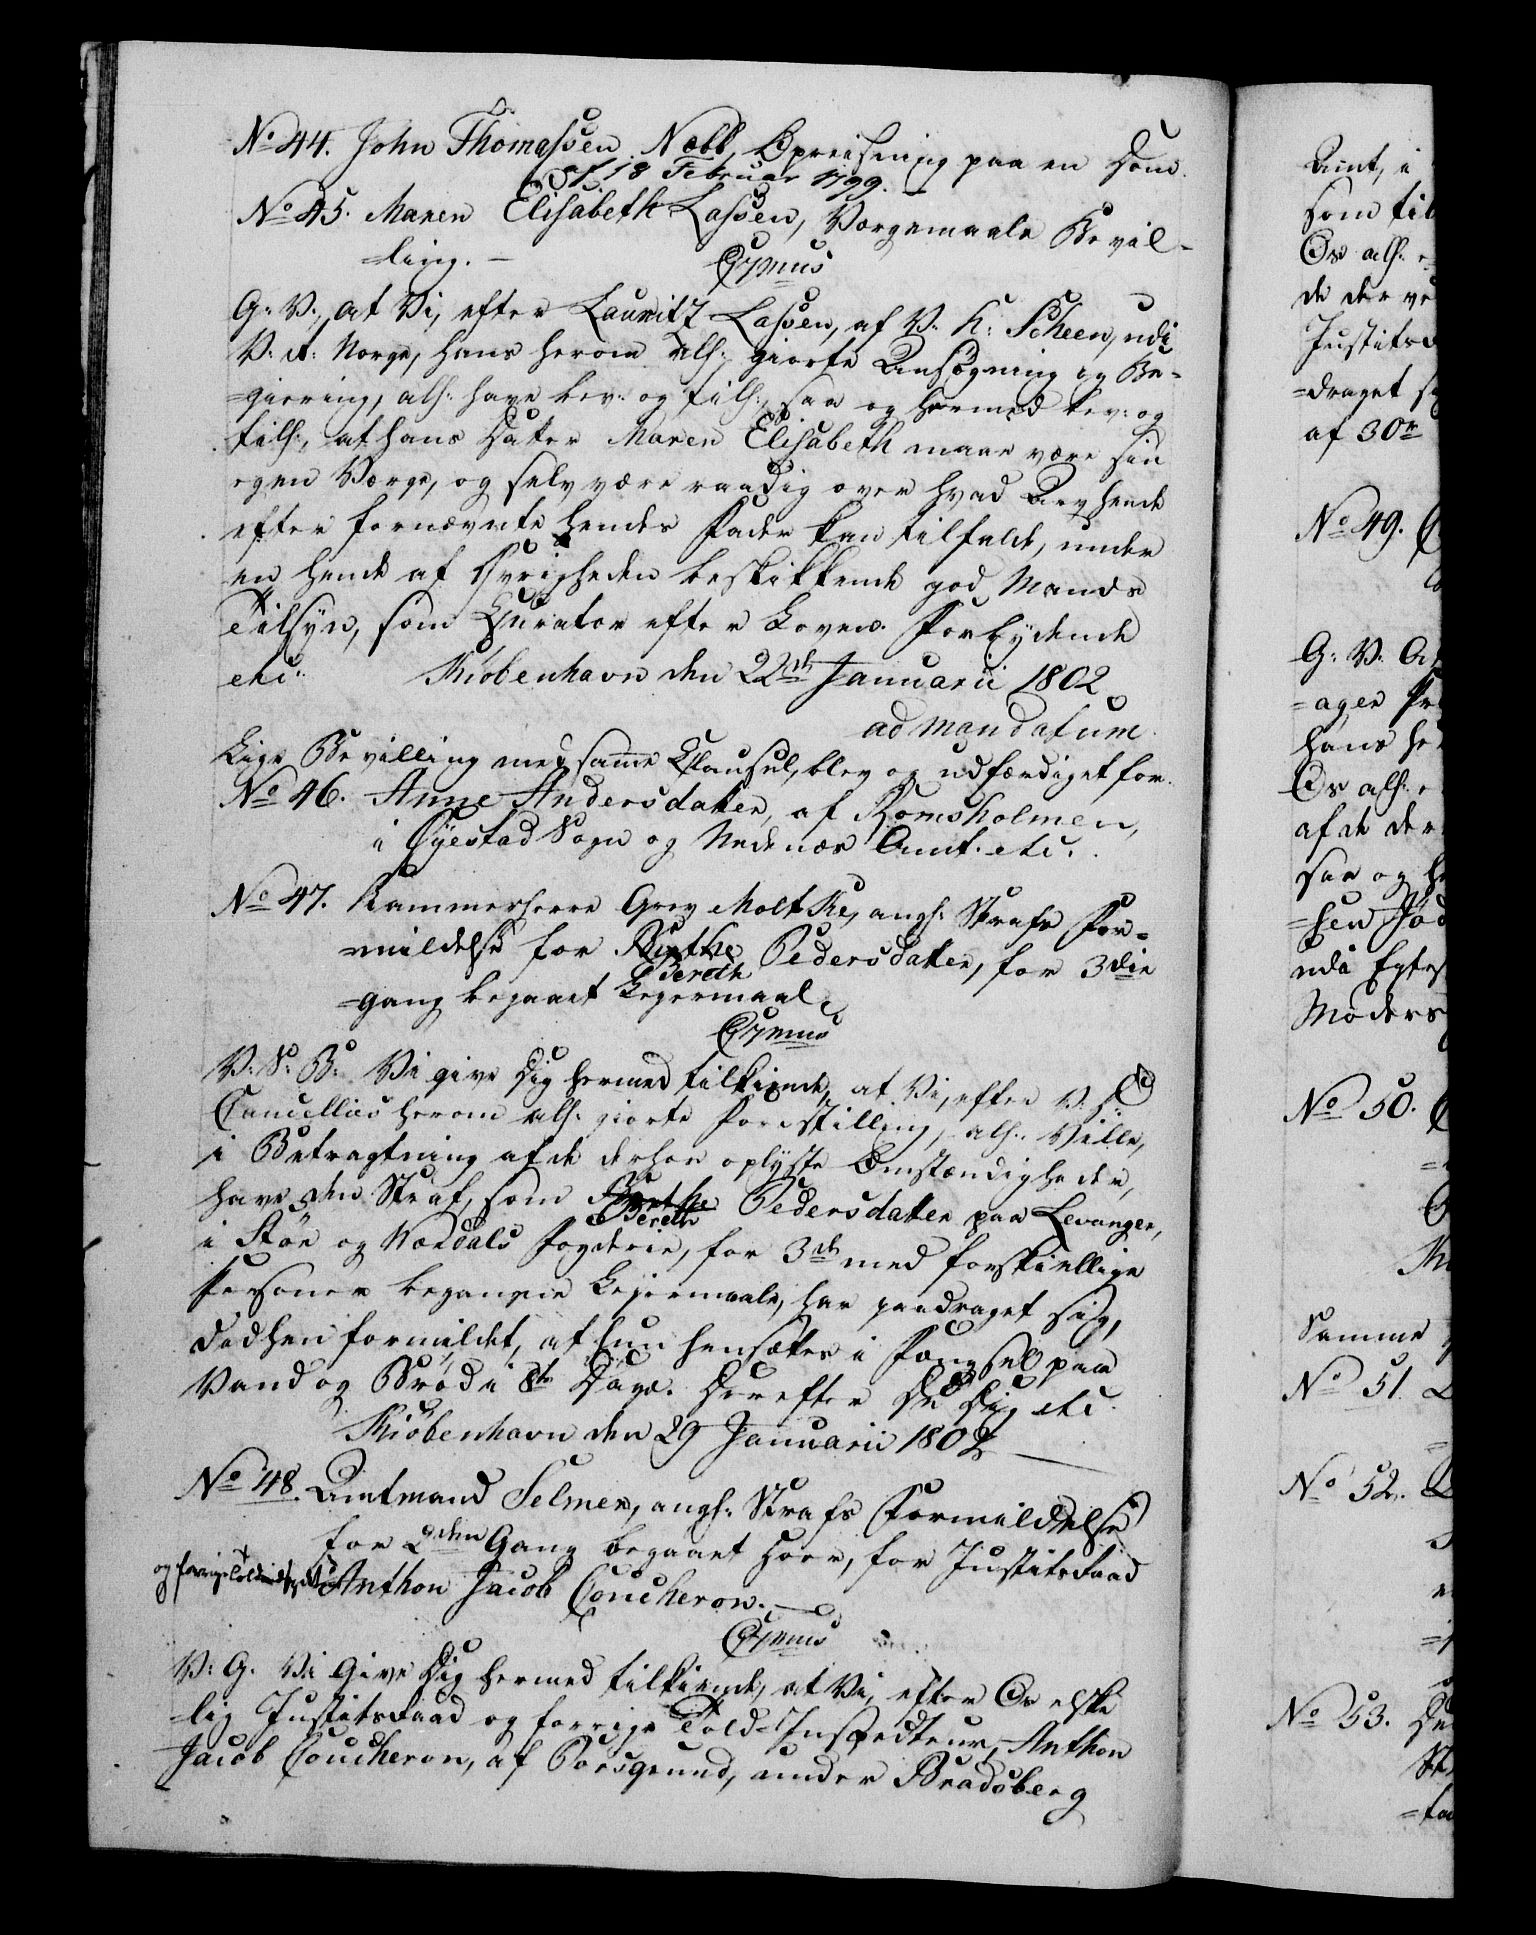 No 44. John Thomassen Næbb, Opreisning paa en Dom.
Cf. 18 Februar 1799.
No 45. Maren Elisabeth Lassen, Værgemaals Bevil-
=ling. —
G: V:, at Vi, efter Lauritz Lassen, af V: K: Scheen, udi
V: R: Norge, hans herom alh: giorte Ansøgning og Be=
=giering, alh: have bev: og tilh:, saa og hermed bev: og
tilh:, at hans Datter Maren Elisabeth maae være sin
egen Værge, og selv være raadig over hvad Arv hende
efter fornævnte hendes Fader kan tilfalde, under
en hende af Øvrigheden beskikkende god Mands
Tilsyn, som Curator efter Loven. Forbydende
etc: Kiøbenhavn den 22de Januarii 1802
ad mandatum.
Lige Bevilling med samme Clausul, blev og udfærdiget for
No 46. Anne Andersdatter, af Romsholmen,
i Øyestad Sogn og Nedenæs Amt. etc.
No 47. Kammerherre Grev Moltke, angl: Straffs For=
=mildelse for Berthe Pedersdatter, for 3die
Bereth
=gang begaaet Leiermaal.
V: S: B: Vi give Dig hermed tilkiende, at Vi, efter V: H: C
Cancellies herom alh: giorte Forestilling, alh: Ville,
i Betragtning af de derhos oplyste Omstændigheder,
have den Straf, som Berthe Pedersdatter paa Levanger,
Bereth
i Stør og Værdals Fogderie, for 3de med forskiellige
Personer begangne Leiermaale, har paadraget sig,
dedhen formildet, at hun hensættes i Fængsel paa
Vand og Brød i 8te Dage. Derefter Du Dig etc.
Kiøbenhavn den 29 Januarii 1802
No 48. Amtmand Selmer, angl: Straffs Formildelse
for 2den Gang begaaet Hoer, for Justitsraad
og forrige Anthon Jacob Coucheron. —
V: G. Vi Give Dig hermed tilkiende, at Vi, efter Os elske
=lig Justitsraad og forrige Told-Inspecteur, Anthon
Jacob Coucheron, af Porsgrund, under Bradsberg
Amt, i
som til
Os alh:
de der ve
Justitsr
=draget s
af 30te
No 49.
G: V: At
=ager Pr
hans he
Os alh:
af de der
saa og he
=sen
udi Egtes
Moders
No 50.
Samme
No 51.
No 52.
No 53. De